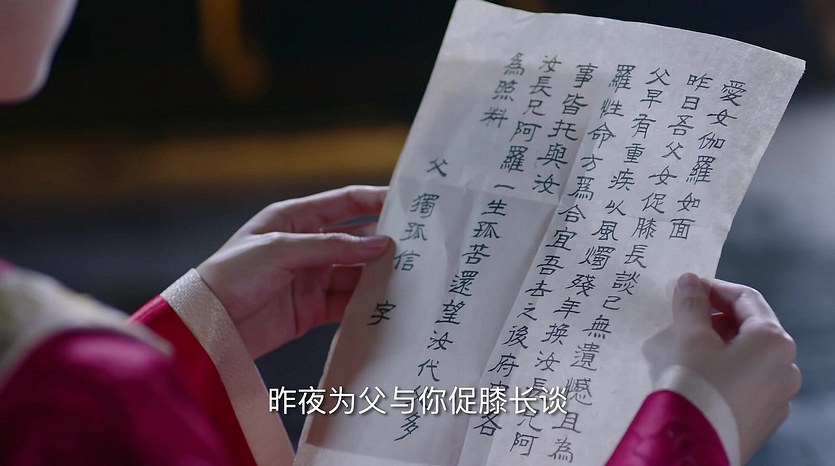 愛女伽羅如面
昨日吾父女促膝長談已無遺憾且為
父早有重疾以風燭殘年換汝長兄阿
羅性命方為合宜吾去之後府中各
事皆托與汝
汝長兄阿羅一生孤苦還望汝代多
為照料
父 獨孤信 字
昨夜为父与你促膝长谈